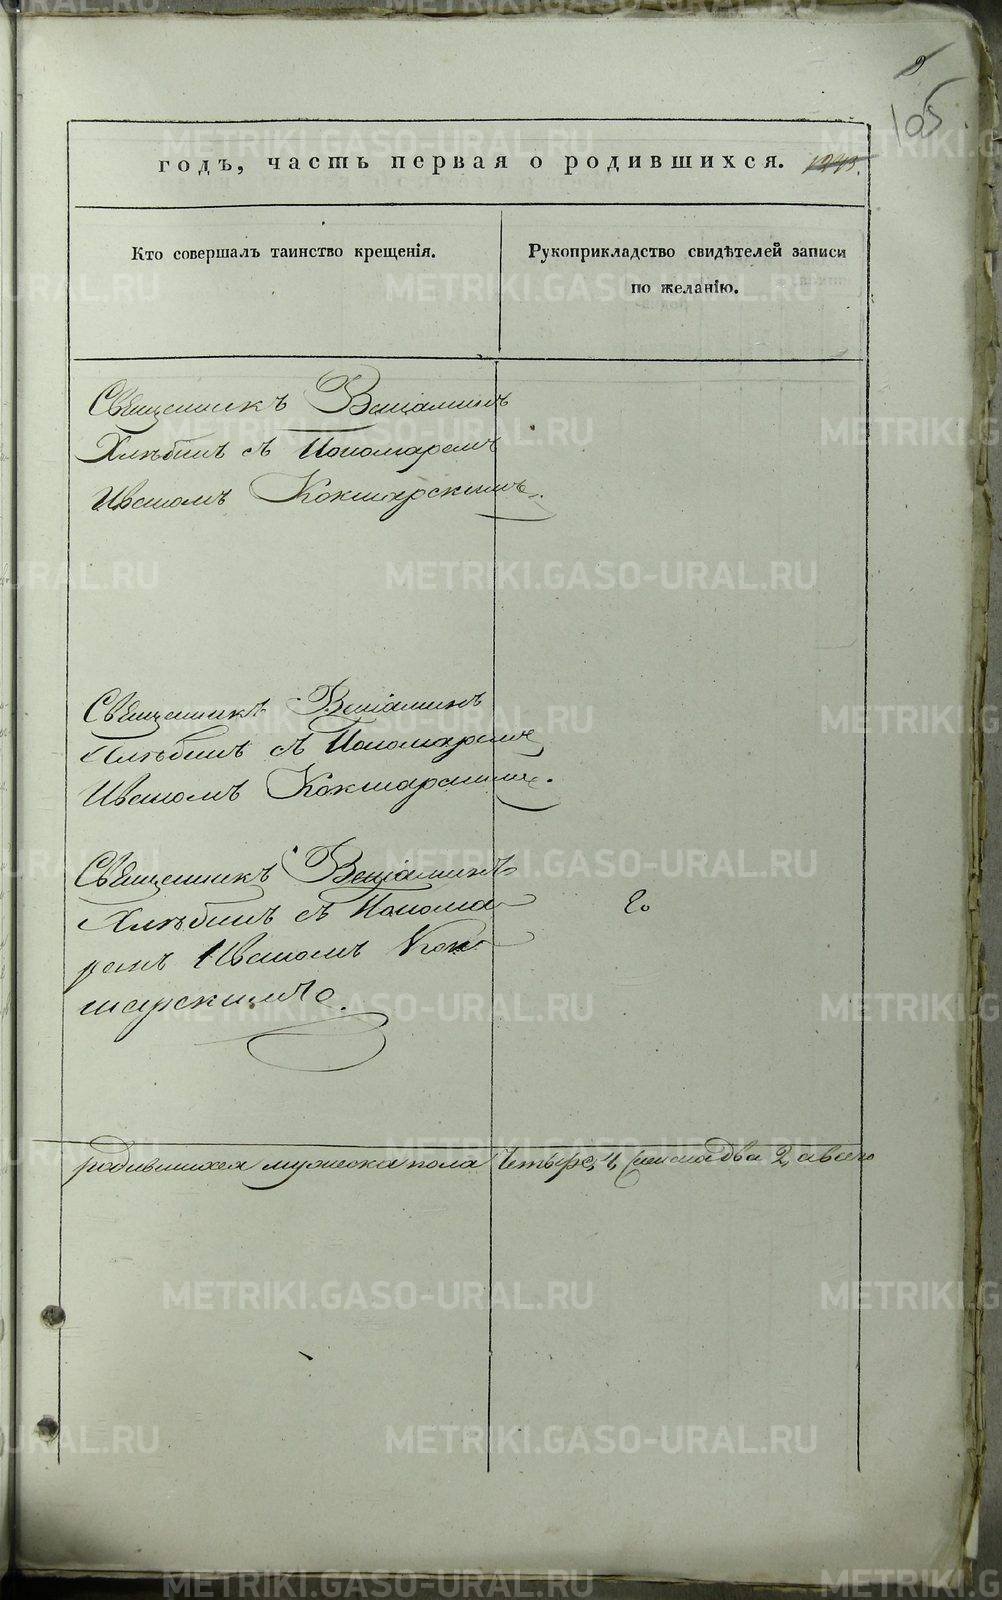 105
годъ, часть первая о родившихся.
Кто совершалъ таинство крещенія.
Рукоприкладство свидѣтелей записи
по желанію.
Священникъ Веніаминъ
Хлѣбинъ съ Пономаремъ
Иваномъ Кокшарскимъ.
Священникъ Веніаминъ
Хлѣбинъ съ Пономаремъ
Иваномъ Кокшарскимъ.
Священникъ Веніаминъ
Хлѣбинъ съ Понома-
ремъ Иваномъ Кок-
шарскимъ.
родившихся мужеска пола четыре, 4 женска два 2, а всего
METRIKI.GASO-URAL.RU